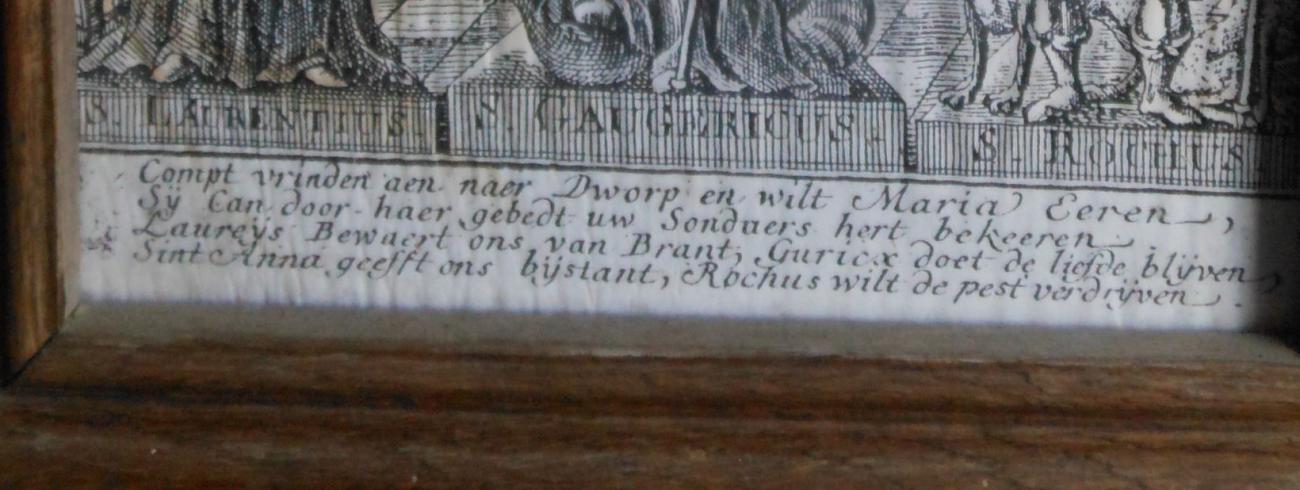 S. LAURENTIUS. S. GAUGERICUS. S. ROCHUS
Compt vrinden aen naer Dworp en wilt Maria Eeren,
Sÿ Can door haer gebedt uw Sondaers hert bekeeren
Laureÿs Bewaert ons van Brant, Guricx doet de liefde blÿven,
Sint Anna geefft ons bÿstant, Rochus wilt de pest verdrÿven.